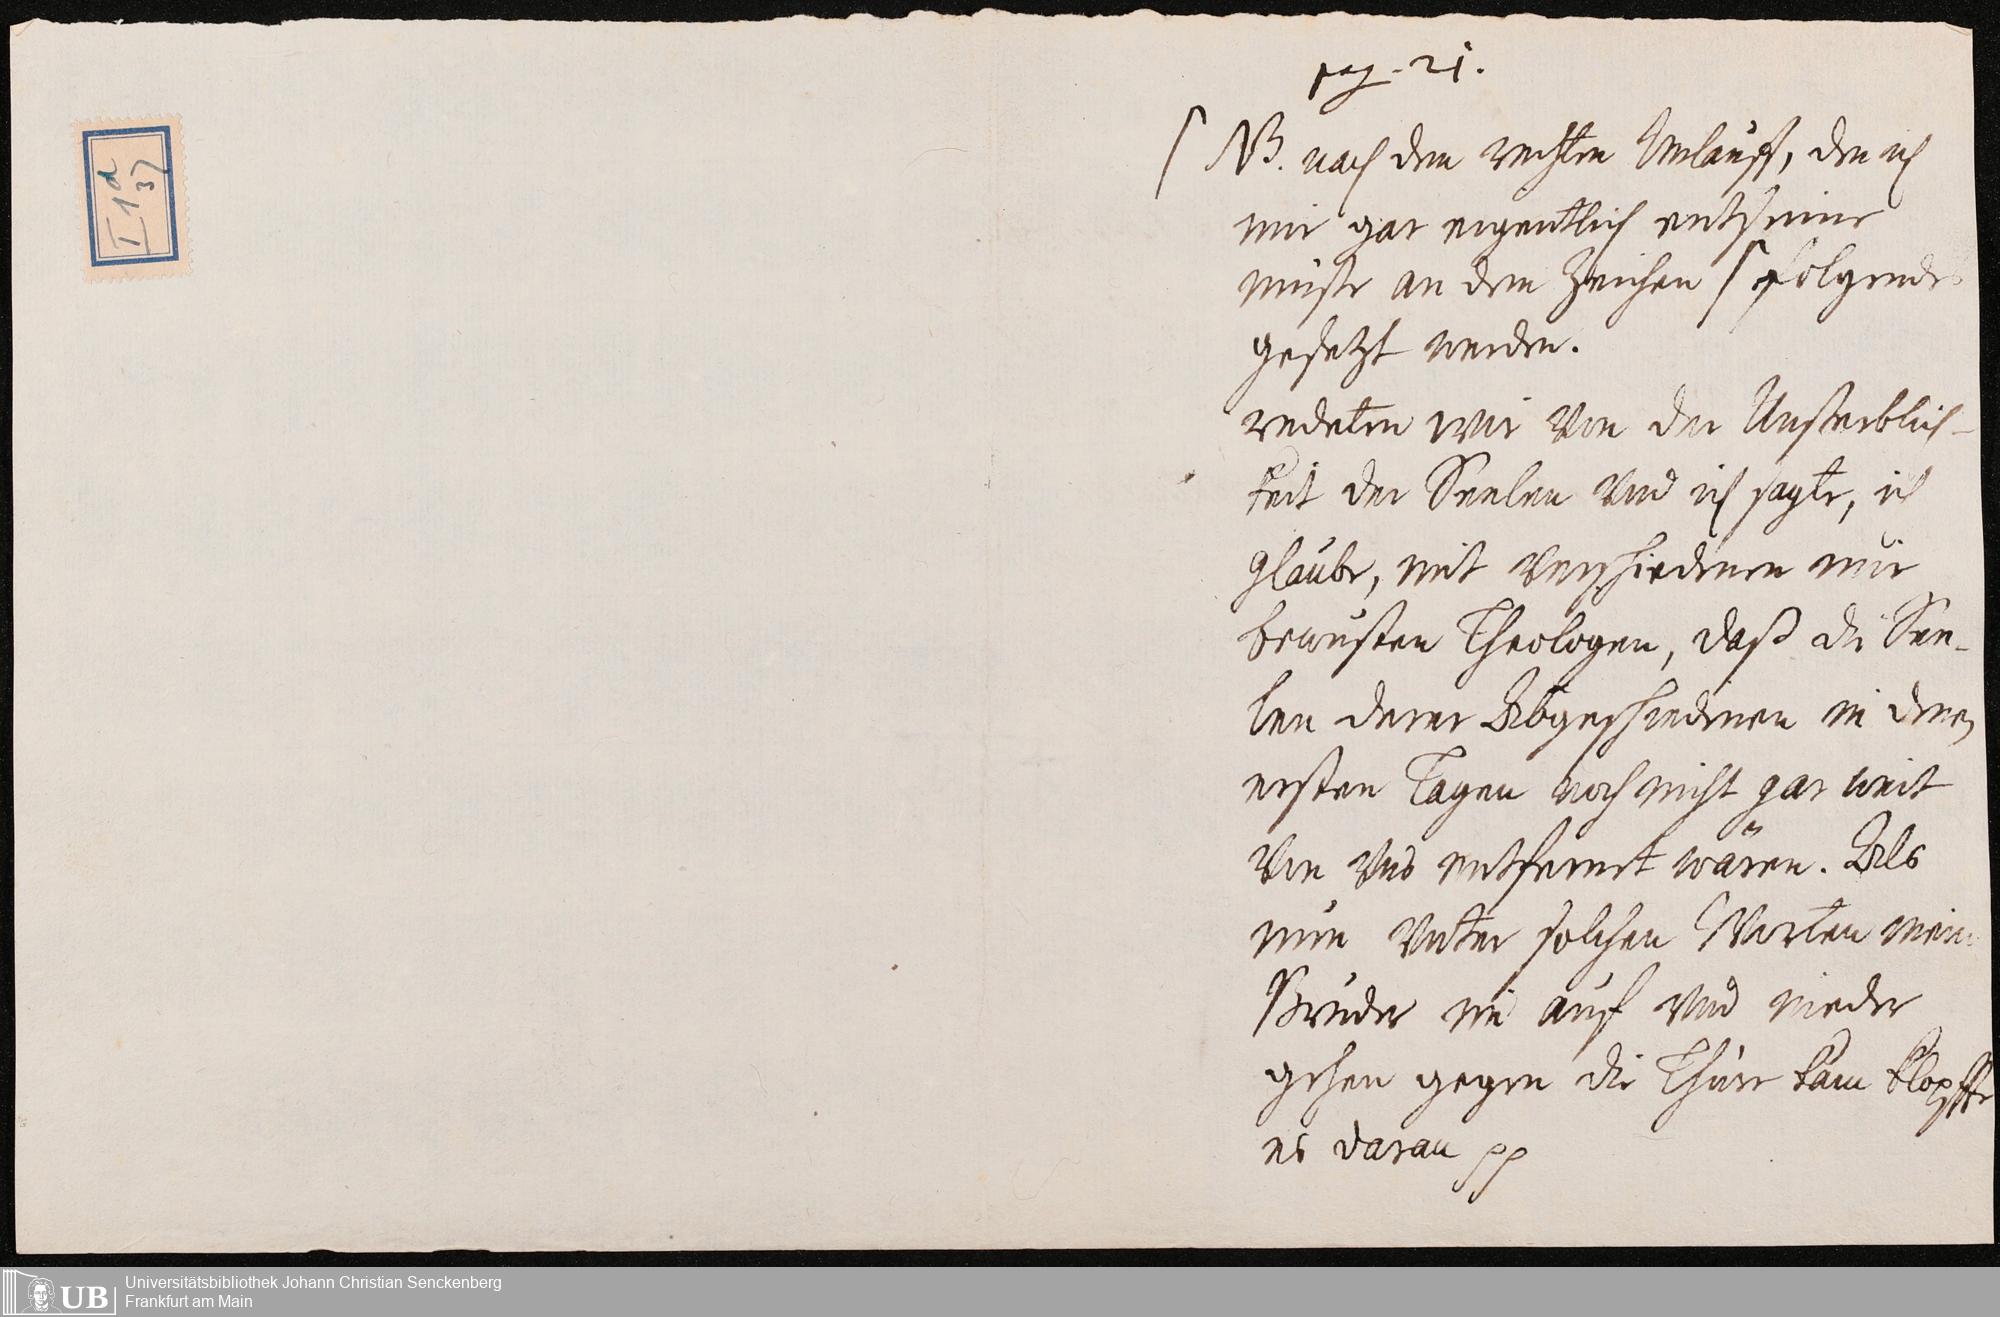 I 1d
37
pag. 21.
⌠ NB. nach dem rechten Umlauff, den ich
mir gar eigentlich entsinne
müste an dem Zeichen ⌠ folgendes
gesetzt werden.
redeten wir von der Unsterblich-
keit der Seelen vnd ich sagte, ich
glaube, mit verschiedenen mir
bewusten Theologen, daß die See-
len derer Abgeschiedenen in denen
ersten Tagen noch nicht gar weit
von vns entfernt wären. Als
nun vnter solchen Worten mein
Bruder im auf vnd nieder
gehen gegen die Thüre kam klopffte
es daran pp
UB
Universitätsbibliothek Johann Christian Senckenberg
Frankfurt am Main